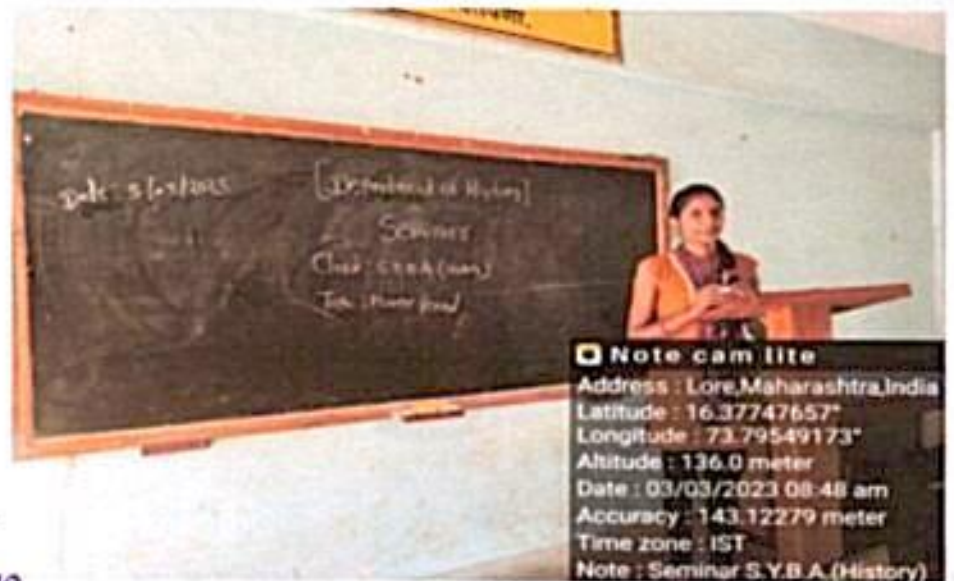 Date : 3/03/2023
[Department of History]
Seminar
Class : S.Y.B.A (
Note cam lite
Address : Lore,Maharashtra,India
Latitude : 16.37747657°
Longitude : 73.79549173°
Altitude : 136.0 meter
Date : 03/03/2023 08:48 am
Accuracy : 143.12279 meter
Time zone : IST
Note : Seminar S.Y.B.A.(History)